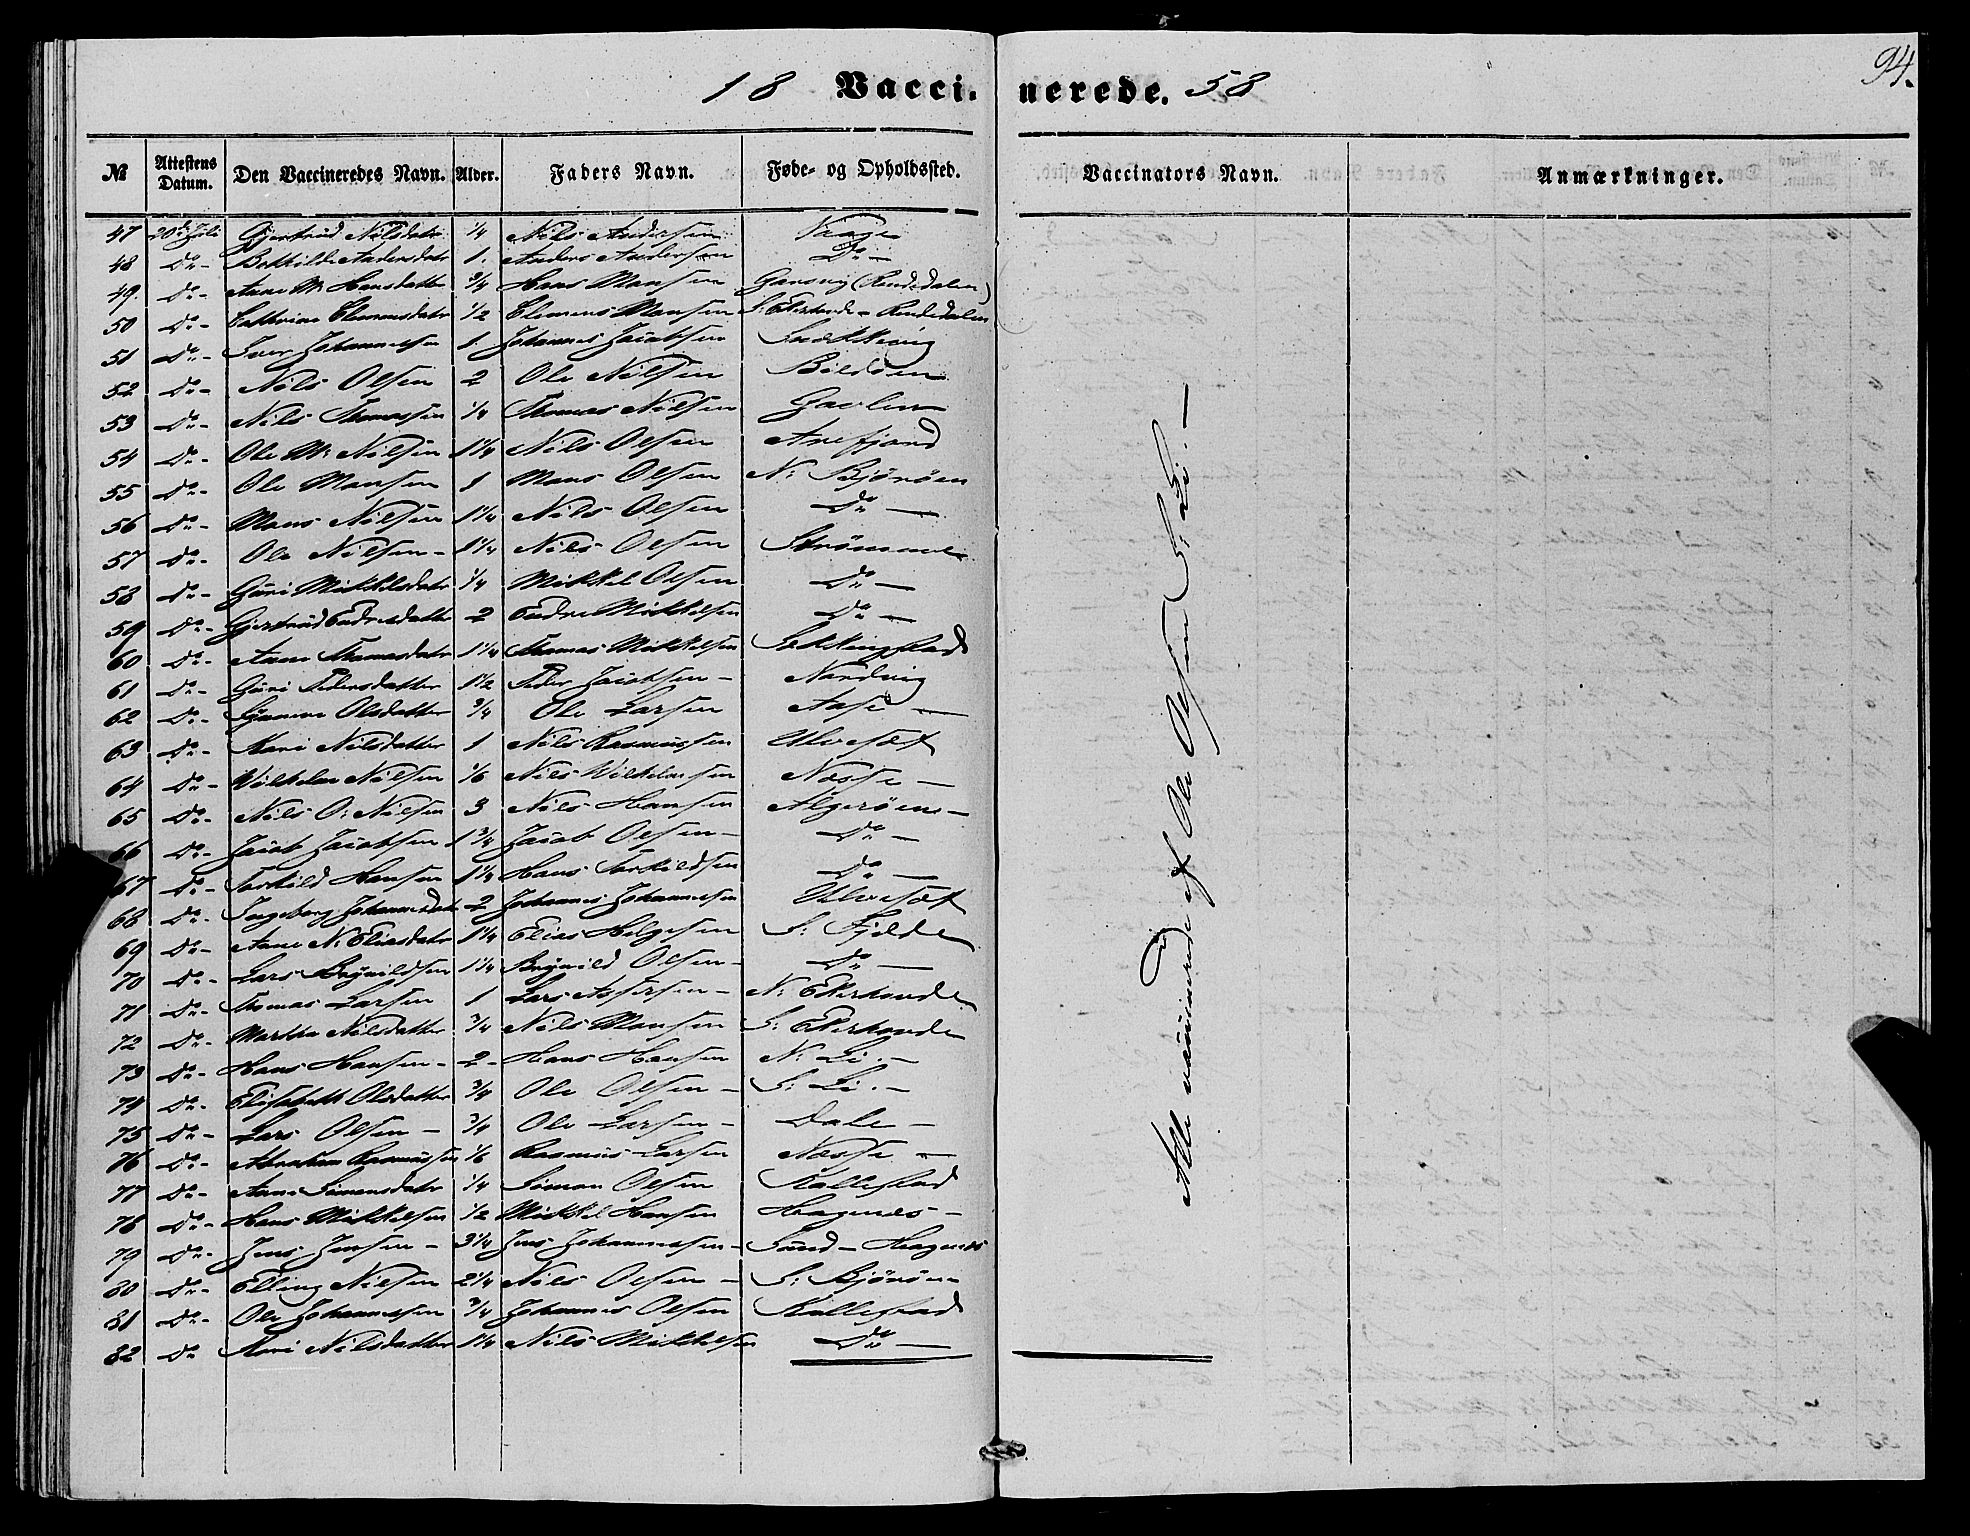 94.
18 Vacci- nerede. 58
№ Attestens Datum. Den Vaccineredes Navn. Alder. Faders Navn. Føde- og Opholdssted. Vaccinators Navn. Anmærkninger.
47 20de Juli Gjertrud Nilsdatr 1/4 Nils Andersen Vaage
48 Do- Bothilde Andersdatr 1. Anders Andersen Do-
49. Do- Anne M. Hansdatter 3/4 Hans Monsen (Rendedalen)
50 Do- Cathrine Clemensdatr 1/2 Clemens Monsen S: Ekerhovde - Rendedalen
51 Do- Iver Johannessen 1. Johannes Jacobsen Snekkevig
52 Do- Nils Olsen 2 Ole Nilsen Bildøen
53 Do- Nils Thomassen 1/4 Thomas Nilsen
54 Do- Ole M. Nilsen 1 1/4 Nils Olsen Arefjord
55 Do- Ole Monsen 1 Mons Olsen N: Bjørøen
56 Do- Mons Nilsen 1 1/4 Nils Olsen Do-
57 Do- Ole Nilsen- 1 1/4 Nils Olsen Strømme
58 Do- Guri Mikkelsdatr 1/4 Mikkel Olsen Do-
59 Do- Gjertrud Endresdatter 2 Endre Mikkelsen Do-
60 Do- Anne Thomasdatr 1 1/4 Thomas Mikkelsen Sekkingstad
61 Do- Guri Pedersdatter 1 1/2 Peder Jacobsen- Nordvig
62 Do- Synneve Olsdatter 3/4 Ole Larsen
63 Do- Kari Nilsdatter 1 Nils Rasmussen Ulveset
64 Do- Wilhelm Nilsen 1/6 Nils Wilhelmsen Nesse-
65 Do- Nils O: Nilsen 3 Nils Hansen Algerøen-
66 Do- Jacob Jacobsen 1 3/4 Jacob Olsen- Do-
67 Do- Torkild Hansen 1 1/4 Hans Torkildsen Do-
68 Do- Ingeborg Johannesdatr 2 Johannes Johannessen Ulveset
69 Do- Anne N. Eliasdatr 1 1/4 Elias Helgesen S: Fjelde
70 Do- Lars Brynildsen 1 1/4 Brynild Olsen- Do-
71 Do- Thomas Larsen 1 Lars Assersen- N: Ekerhovde
72 Do- Martha Nilsdatter 3/4 Nils Monsen S: Ekerhovde
73 Do- Hans Hansen- 2- Hans Hansen N: Li.-
74 Do- Elisabeth Olsdatter 3/4 Ole Olsen- S: Li.-
75 Do- Lars Olsen- 3/4 Ole Larsen- Dale-
76 Do- Abraham Rasmussen 1/6 Rasmus Larsen Nesse-
77 Do- Anne Simonsdatr 1/4 Simon Olsen Kallestad
78 Do- Hans Mikkelsen 1/2 Mikkel Hansen Hagenæs-
79 Do- Jens Jensen- 3 1/4 Jens Johannessen- Sund- Hagenæs
80 Do- Elling Nilsen 2 1/4 Nils Olsen- S: Bjørøen
81 Do- Ole Johannessen 3/4 Johannes Olsen Kallestad
82 Do Kari Nilsdatter 1 1/4 Nils Mikkelsen Do-
Alle vaccinerede af Ole Olsen S. Li.-